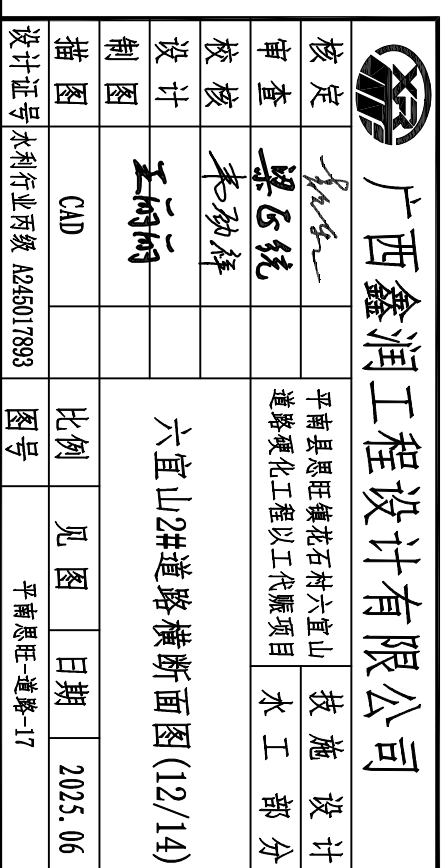 XR
广西鑫润工程设计有限公司
核定
平南县思旺镇花石村六宜山
道路硬化工程以工代赈项目
技施 设计
审查
水工 部分
校核
设计
六宜山2#道路横断面图(12/14)
制图
描图 CAD 比例 见图 日期 2025.06
设计证号 水利行业丙级 A245017893 图号 平南思旺-道路-17